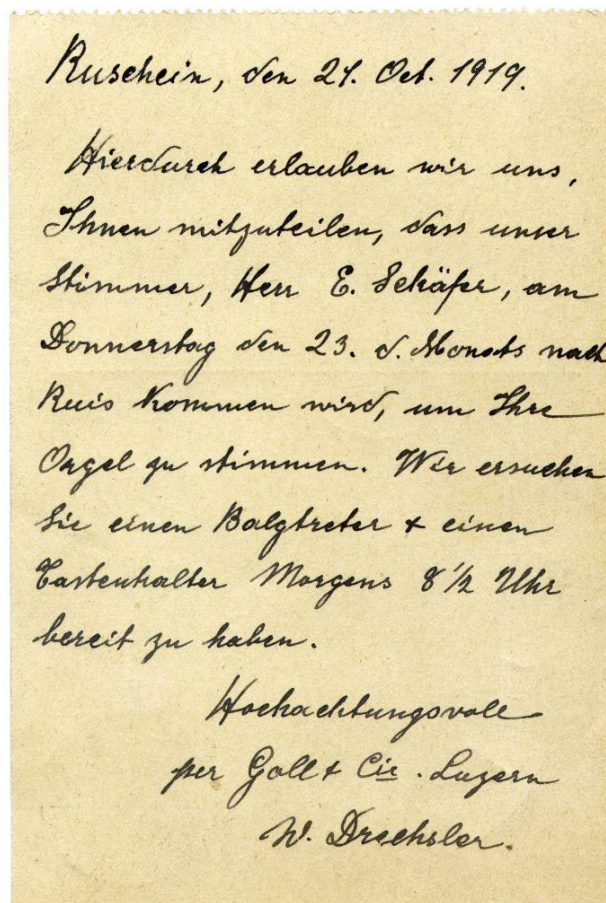 Ruschein, den 21. Oct. 1919.
Hierdurch erlauben wir uns,
Ihnen mitzuteilen, dass unser
Stimmer, Herr E. Schäfer, am
Donnerstag den 23. d. Monats nach
Ruis kommen wird, um Ihre
Orgel zu stimmen. Wir ersuchen
Sie einen Balgtreter & einen
Tastenhalter Morgens 8 1/2 Uhr
bereit zu haben.
Hochachtungsvoll
per Goll & Cie. Luzern
W. Drechsler.